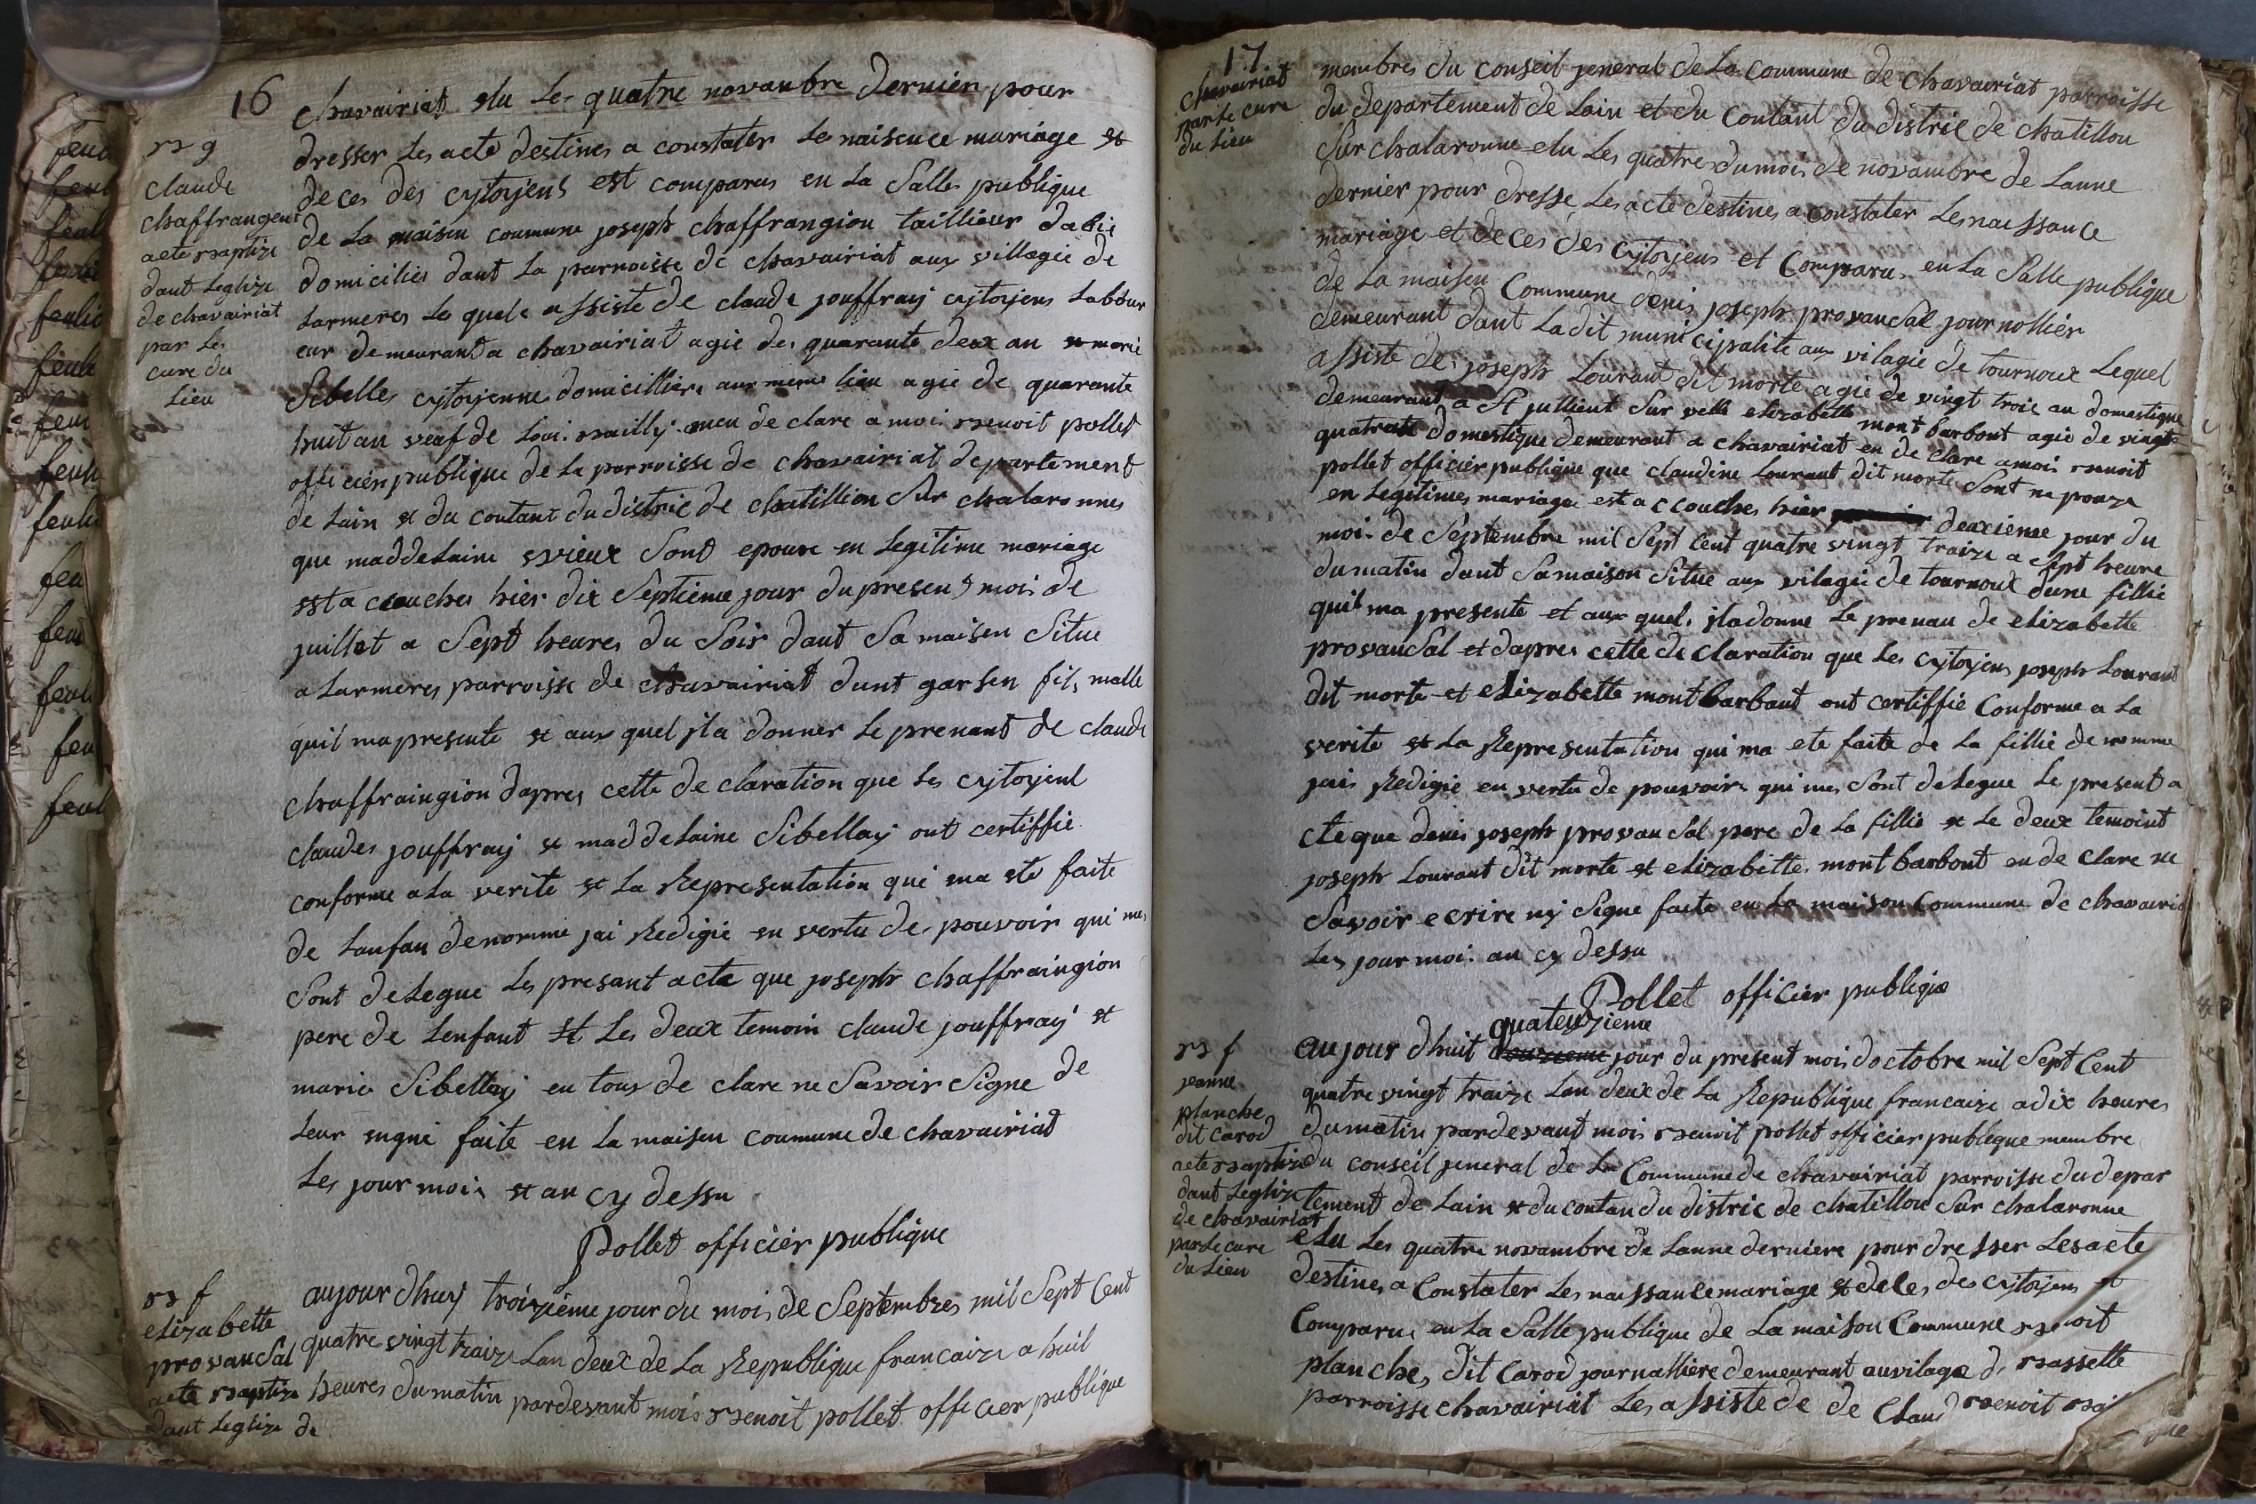 16
chavairiat elu les quatre novanbre dernier pour
dresser les acte destines a constater le naisence mariage et
de ces des cytoyens est comparus en la Salle publique
de La maisen coumune joseph chaffrangion taillieur dabis
domicilies dant La parroisse de chavairiat aux villagie de
Larmeres le quele assiste de claude jouffray cytoyens Labour
eur demeurant a chavairiat agie des quarante deux an et marie
Sibelles cytoyenne domicilliere aux meme lieu agie de quarante
huit an veuf de Loui en de clare a moi benoit pollet
officier publique de la parroisse de chavairiat departement
de Lain et du coutant du distric de chatillion Sur chalaronnes
que maddelaine Sont epouse en Legitime mariage
est a ccouches hier dix Septieme jour du present moi de
juillet a Sept heures du Soir dant Sa maisen Situe
a Larmeres parroisse de chavairiat dunt garsen fils malle
quil ma presente et aux quel jl a donner Le prenant de claude
chaffraingion dapres cette de claration que Les cytoyent
claudes jouffray et maddelaine Sibellay ont certiffie
conforme a La verite et La Representation qui ma ete faite
de Lanfan denomme jai Redigie en vertu de pouvoir qui mes
Sont delegue Les presant acte que joseph chaffraingion
pere de Lenfant et Les deux temoin claude jouffray et
marie Sibellay en tous de clare ne Savoir Signe de
Leur engni faite en La maisen coumune de chavairiat
Les jour moi et an cy dessu
Pollet officier publique
b g
claude
chaffrangeut
aete baptize
dant Leglize
de chavairiat
par Les
cure du
Lieu
b f
elizabette
provansal
aete baptize
dant Leglize de
aujourdhuy troizieme jour du moi de Septembres mil Sept Cent
quatre vingt traize Lan deux de La Republique francaize a huit
heures du matin pardevant moi benoit pollet officier publique
17
chavairiat
par le cure
du Lieu
membres du conseil jeneral de La commune de chavairiat parroisse
du departement de Lain et du coutant du distric de chatillon
Sur chalaronne elu Les quatre du moi de novambre de Lanne
dernier pour dresse Les acte destines a constater Les naissance
mariage et deces des cytoyens et comparus en La Salle publique
de La maisen Commune denis joseph provansal journollier
demeurant dant Ladit municipalite aux vilagie de tournoux Lequel
assiste de joseph Lourant dit morte agie de vingt trois an domestique
demeurant a St jullient Sur velle elizabette montbarbont agie de vingt
quatrate domestique demeurant a chavairiat en de clare a moi benoit
pollet officier publique que claudine Lourant dit morte Sont ne pouze
en Legitimes mariage est a ccouches hier deuxieme jour du
moi de Septembre mil Sept Cent quatre vingt traize a Sept heure
du matin dant Sa maison Situe aux vilagie de tournoux dune fillie
quil ma presente et aux quel jl a donne Le prenau de elizabette
provansal et dapres cette de claration que Les cytoyens joseph Lourant
dit morte et elizabette montbarbant ont certiffie Conforme a La
verite et La Representation qui ma ete faite de La fillie denomme
jais Redigie en vertu de pouvoirs qui mes Sont delegue Le present a
cte que denis joseph provansal pere de La fillie et Le deux temoint
joseph Lourant dit morte et elizabette montbarbont en de clare ne
Savoir ecrire ny Signe faite en La maison Commune de chavairia
Les jour moi an cy dessu
Pollet officier publique
b f
jeanne
planche
dit Carod
aete baptize
dant Leglize
de chavairiat
par Le cure
du Lieu
quateuzieme
aujourdhuit douzieme jour du present mois doctobre mil Sept Cent
quatre vingt traize Lan deux de La Republique francaize a dix heures
du matin pardevant mois benoit pollet officier publique membre
du conseil jeneral de La Commune de chavairiat parroisse du depar
tement de Lain et du coutan du distric de chatillon Sur chalaronne
elu Les quatre novambre de Lanne derniere pour dresser Les acte
destines a Constater Les naissance mariage et deces des cytoyens et
Comparus en La Salle publique de La maison Commune benoit
planche, dit Carod journalliere demeurant au vilage de bassette
parroisse chavairiat Les assiste de de Claud benoit